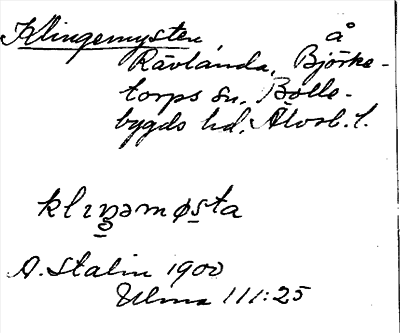 Klingemysten å
Rävlanda, Björke-
torps sn, Bolle-
bygds hd, Älvsb. l.
klıŋəmøsta
A. Stalin 1900
Ulma 111:25